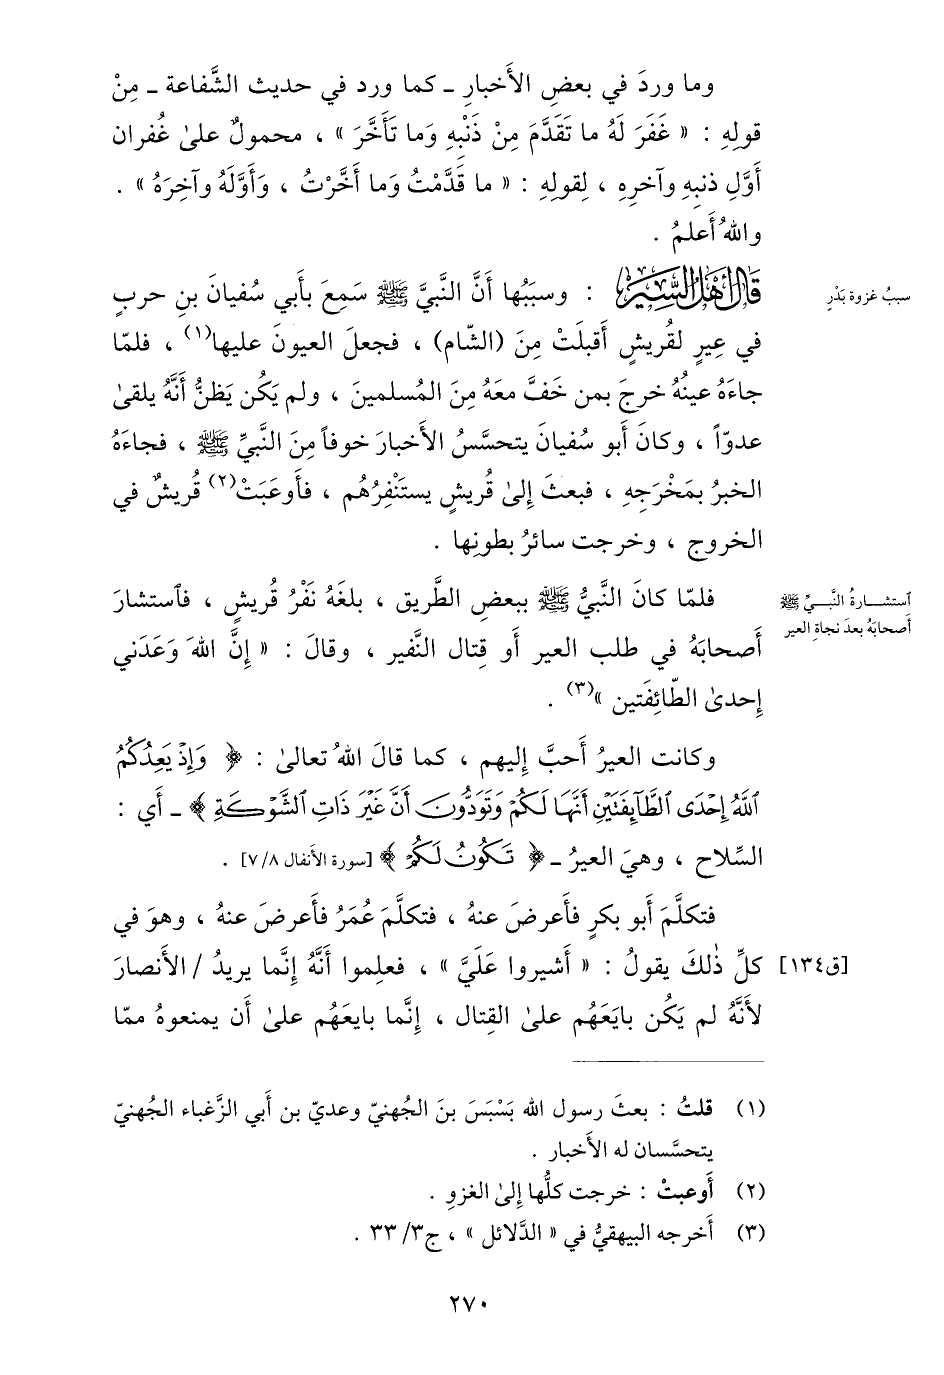 وما وردَ في بعضِ الأَخبارِ ـ كما ورد في حديث الشَّفاعة ـ مِنْ
قولِهِ : « غَفَرَ لَهُ ما تَقَدَّمَ مِنْ ذَنْبِهِ وَما تَأَخَّرَ » ، محمولٌ علىٰ غُفران
أَوَّلِ ذنبِهِ وآخرِهِ ، لِقولِهِ : « ما قَدَّمْتُ وَما أَخَّرْتُ ، وَأَوَّلَهُ وآخِرَهُ » .
واللهُ أَعلمُ .
سببُ غزوة بَدْرٍ
قَالَ أَهْلُ السِّيَرِ : وسبَبُها أَنَّ النَّبيَّ ﷺ سَمِعَ بأَبي سُفيانَ بنِ حربٍ
في عِيرٍ لقُريشٍ أَقبلَتْ مِنَ (الشّام) ، فجعلَ العيونَ عليها(١) ، فلمّا
جاءَهُ عينُهُ خرجَ بمن خَفَّ معَهُ مِنَ المُسلمينَ ، ولم يَكُن يَظنُّ أَنَّهُ يلقىٰ
عدوّاً ، وكانَ أَبو سُفيانَ يتحسَّسُ الأَخبارَ خوفاً مِنَ النَّبيِّ ﷺ ، فجاءَهُ
الخبرُ بمَخْرَجِهِ ، فبعثَ إِلىٰ قُريشٍ يستَنْفِرُهُم ، فأَوعَبَتْ(٢) قُريشٌ في
الخروج ، وخرجت سائرُ بطونِها .
ٱستشـارةُ النَّبـيِّ ﷺ
أَصحابَهُ بعدَ نجاةِ العير
فلمّا كانَ النَّبيُّ ﷺ ببعضِ الطَّريق ، بلغَهُ نَفْرُ قُريشٍ ، فٱستشارَ
أَصحابَهُ في طلب العير أَو قِتال النَّفير ، وقالَ : « إِنَّ اللهَ وَعَدَني
إِحدىٰ الطّائِفَتين »(٣) .
وكانت العيرُ أَحبَّ إِليهم ، كما قالَ اللهُ تعالىٰ : ﴿ وَإِذۡ يَعِدُكُمُ
ٱللَّهُ إِحۡدَى ٱلطَّآئِفَتَيۡنِ أَنَّهَا لَكُمۡ وَتَوَدُّونَ أَنَّ غَيۡرَ ذَاتِ ٱلشَّوۡكَةِ ﴾ ـ أَي :
السِّلاح ، وهيَ العيرُ ـ ﴿ تَكُونُ لَكُمۡ ﴾ [سورة الأَنفال ٨/ ٧] .
فتكلَّمَ أَبو بكرٍ فأَعرضَ عنهُ ، فتكلَّمَ عُمَرُ فأَعرضَ عنهُ ، وهوَ في
[ق١٣٤] كلِّ ذٰلكَ يقولُ : « أَشيروا عَلَيَّ » ، فعلِموا أَنَّهُ إِنَّما يريدُ / الأَنصارَ
لأَنَّهُ لم يَكُن بايَعَهُم علىٰ القِتال ، إِنَّما بايعَهُم علىٰ أَن يمنعوهُ ممّا
(١) قلتُ : بعثَ رسول الله بَسْبَسَ بنَ الجُهنيّ وعديّ بن أَبي الزَّغباء الجُهنيّ
يتحسَّسان له الأَخبار .
(٢) أَوعبتْ : خرجت كلُّها إِلىٰ الغزوِ .
(٣) أَخرجه البيهقيُّ في « الدَّلائل » ، ج٣/ ٣٣ .
٢٧٠